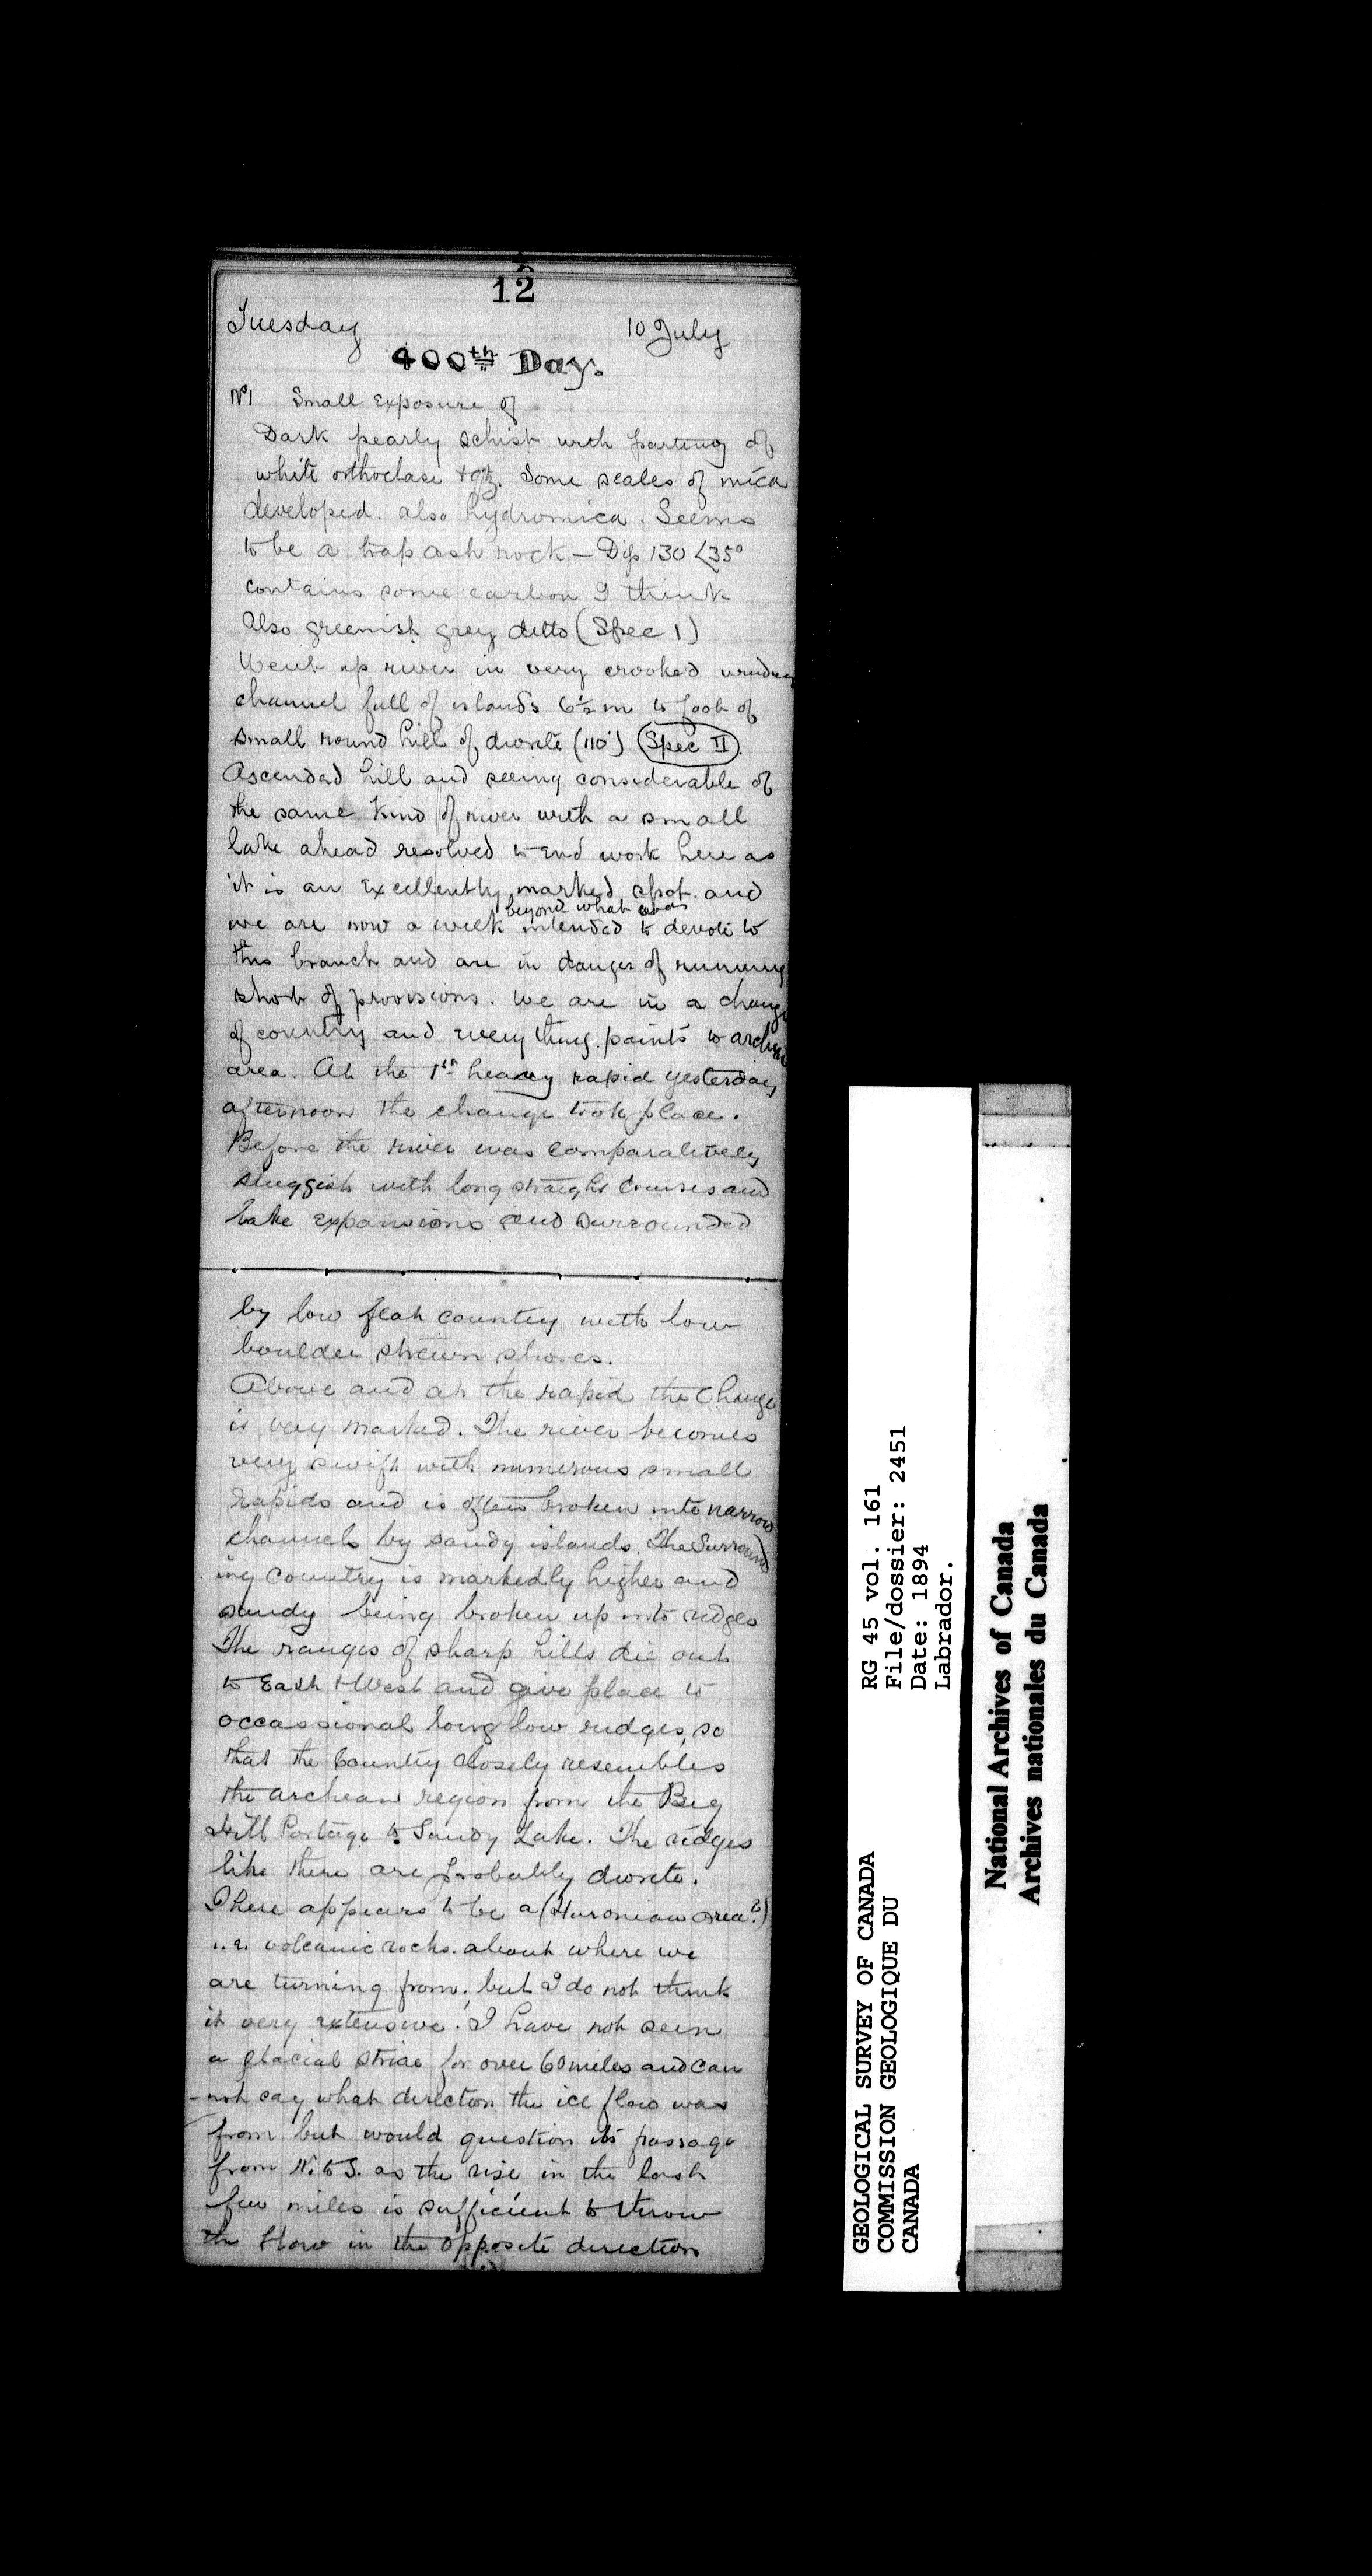 12
Tuesday 10 July
400th Day.
No1 Small Exposure of
Dark pearly schist with parting of
white orthoclase + qtz. Some scales of mica
developed. also hydromica. Seems
to be a trap ash rock — Dip 130 <35°
contains some carbon I think
Also greenish grey ditto (Spec 1)
Went up river in very crooked
channel full of islands 6½ m to foot of
small round hill of diorite (110') (Spec II).
Ascended hill and seeing considerable of
the same kind of river with a small
lake ahead resolved to end work here as
it is an Excellently marked spot and
beyond what was
we are now a week intended to devote to
this branch and are in danger of running
short of provisions. We are in a change
of country and everything points to archean
area. At the 1st heavy rapid yesterday
afternoon the change took place.
Before the river was comparatively
sluggish with long straight courses and
lake expansions and surrounded
by low flat country with low
boulder strewn shores.
Above and at the rapid the change
is very marked. The river becomes
very swift with numerous small
rapids and is often broken into narrow
channels by sandy islands. The Surround
ing country is markedly higher and
sandy being broken up into ridges
The ranges of sharp hills die out
to East & West and give place to
occassional long low ridges, so
that the Country closely resembles
the archean region from the Big
Hill Portage to Sandy Lake. The ridges
like there are probably diorite.
There appears to be a (Huronian area?)
i.e. volcanic rocks. about where we
are turning from, but I do not think
it very extensive. I have not seen
a glacial striae for over 60 miles and can
not say what direction the ice flow was
from but would question its passage
from N. to S. as the rise in the last
few miles is sufficient to throw
the flow in the opposite direction
GEOLOGICAL SURVEY OF CANADA
COMMISSION GEOLOGIQUE DU
CANADA
RG 45 vol. 161
File/dossier: 2451
Date: 1894
Labrador.
National Archives of Canada
Archives nationales du Canada